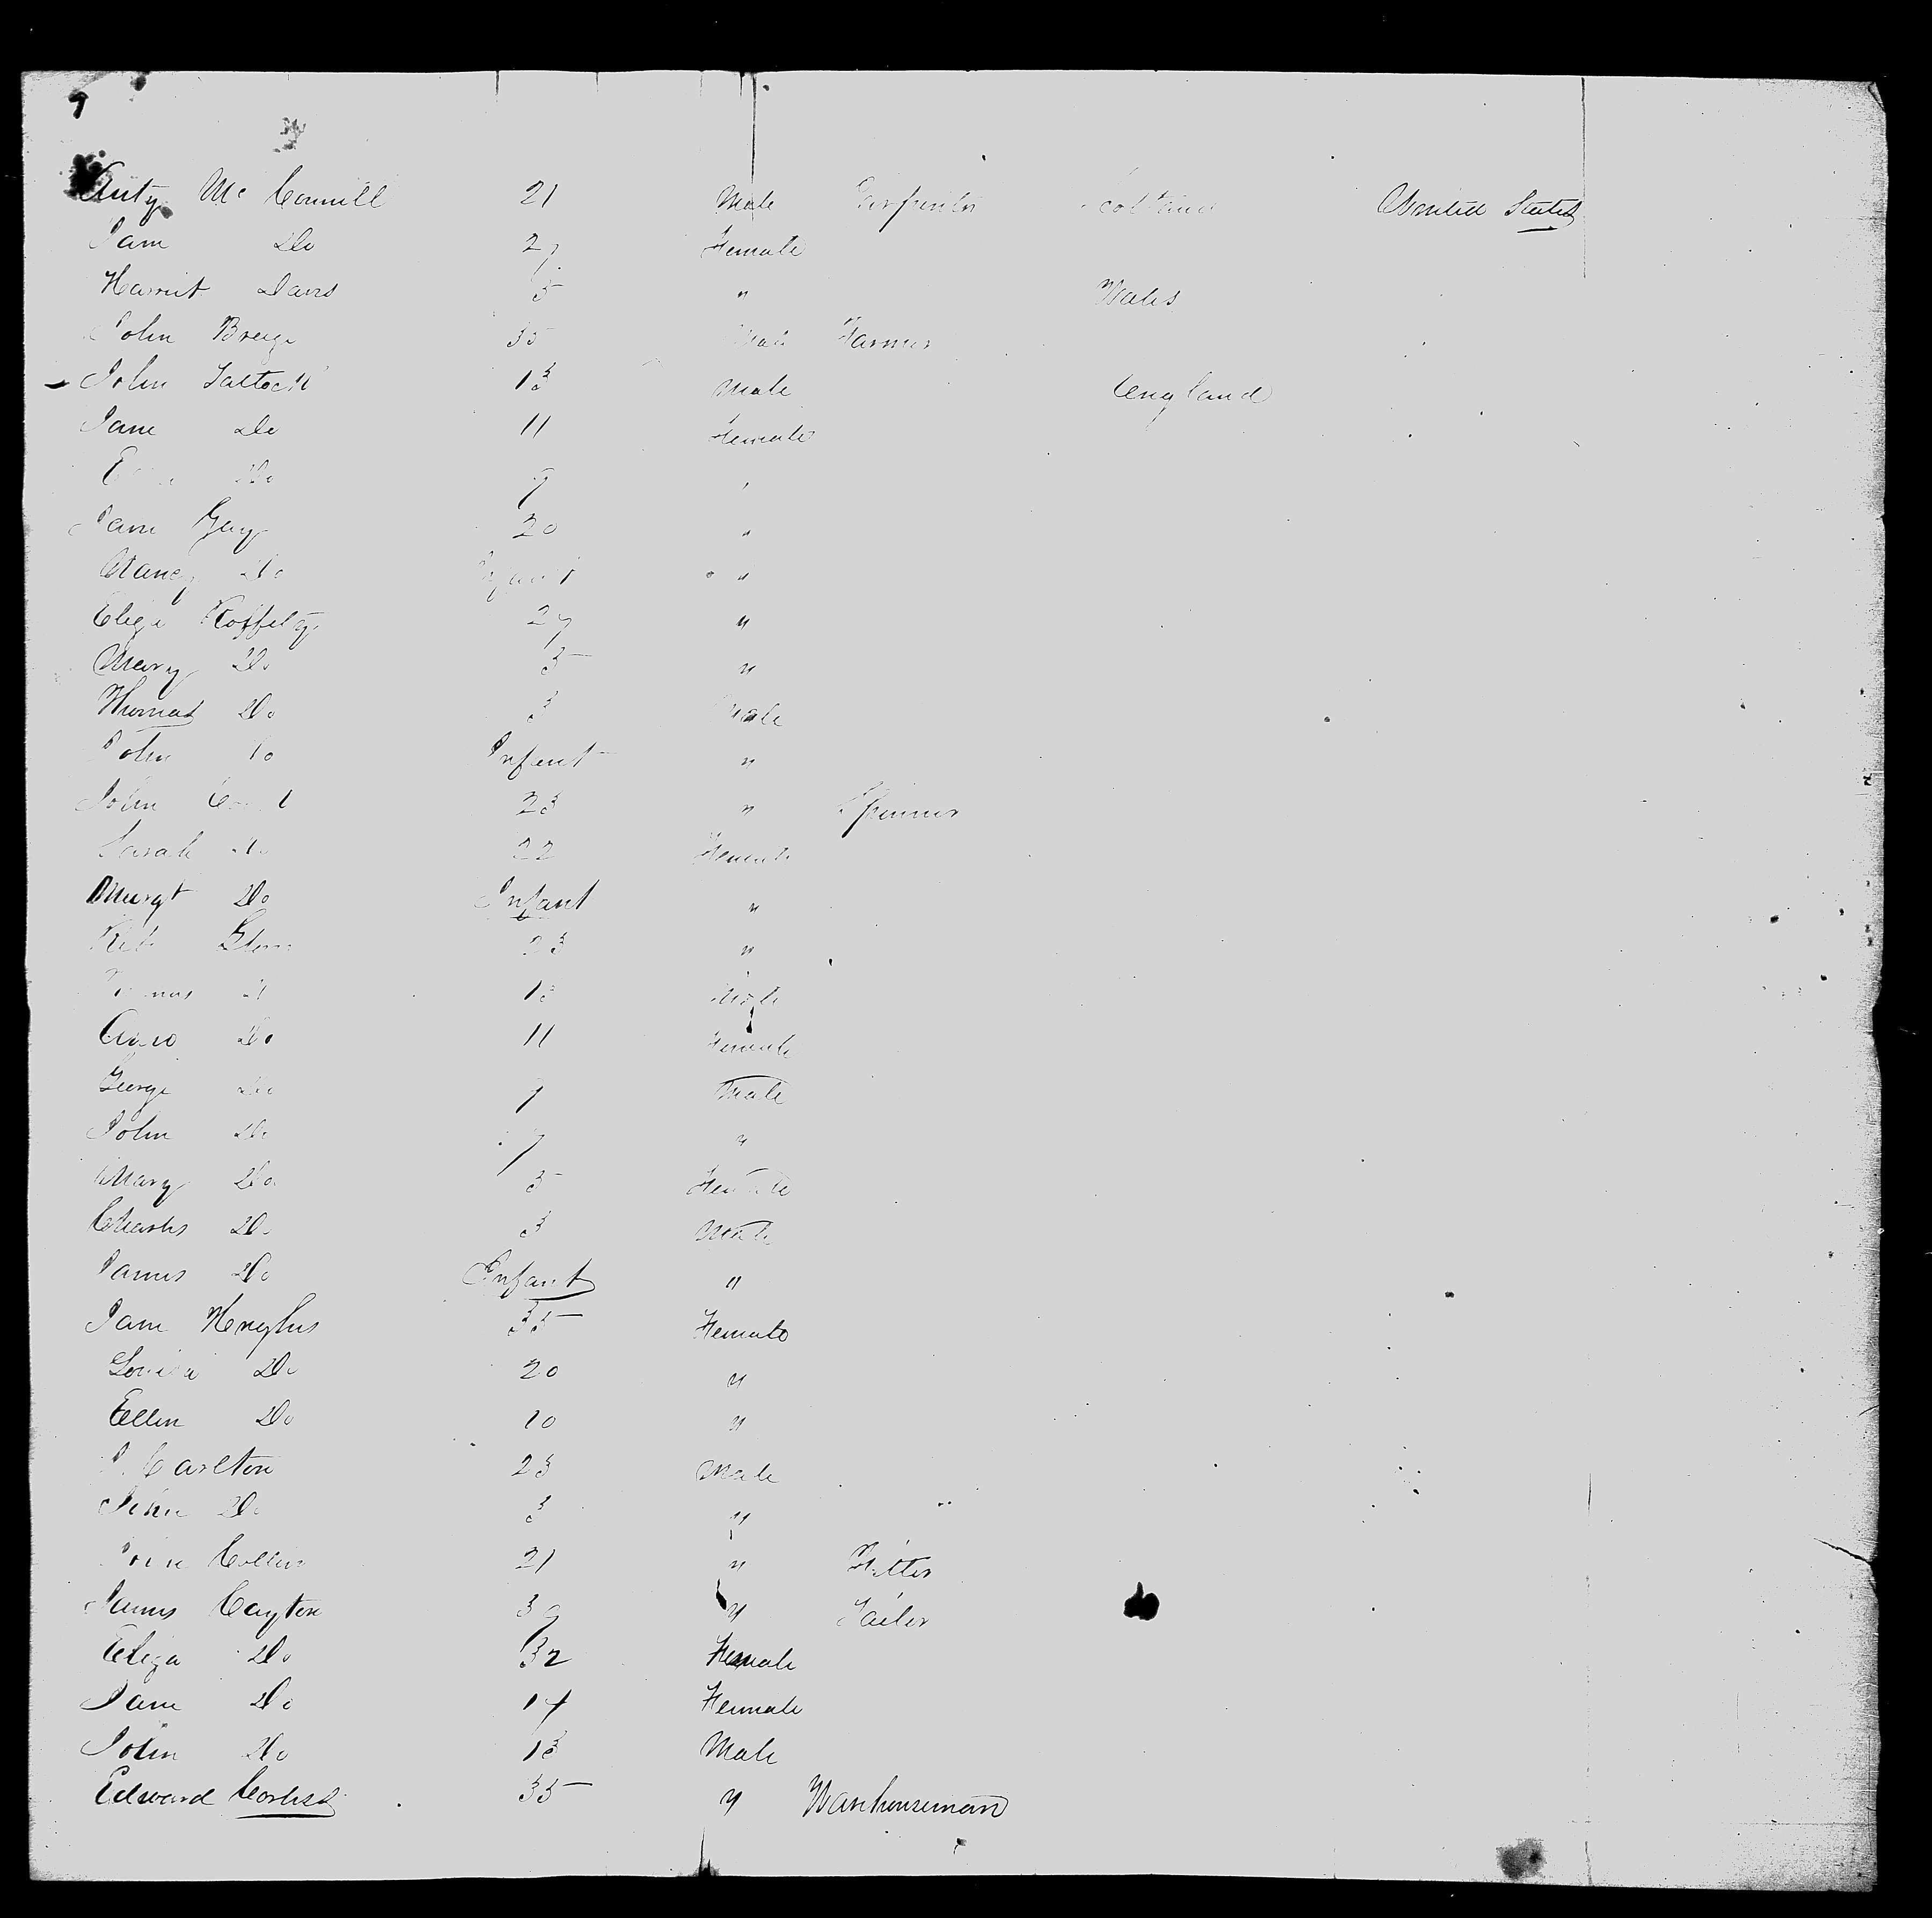 9
Anty Mc Connill 21 Male Carpenter Scotland United States
Jane Do 27 Female
Harriet Davis 5 " Wales
John Breeze 35 Male Farmer
John 13 Male England
Jane Do 11 Female
Do 9 "
Jane Guy 20 "
Do Infant "
Eliza 27 "
Mary Do 5 "
Thomas Do 3 Male
John Do Infant "
John 23 " Spinner
Sarah Do 22 Female
Margt Do Infant "
23 "
Do 13 Male
Do 11 Female
George Do 9 Male
John Do 7 "
Mary Do 5 Female
Charles Do 3 Male
James Do Infant "
Jane 35 Female
Louisa Do 20 "
Ellen Do 10 "
Carlton 23 Male
John Do 3 "
Collins 21 "
James Cayton 39 " Tailor
Eliza Do 32 Female
Jane Do 14 Female
John Do 13 Male
Edward 35 " Warehouseman